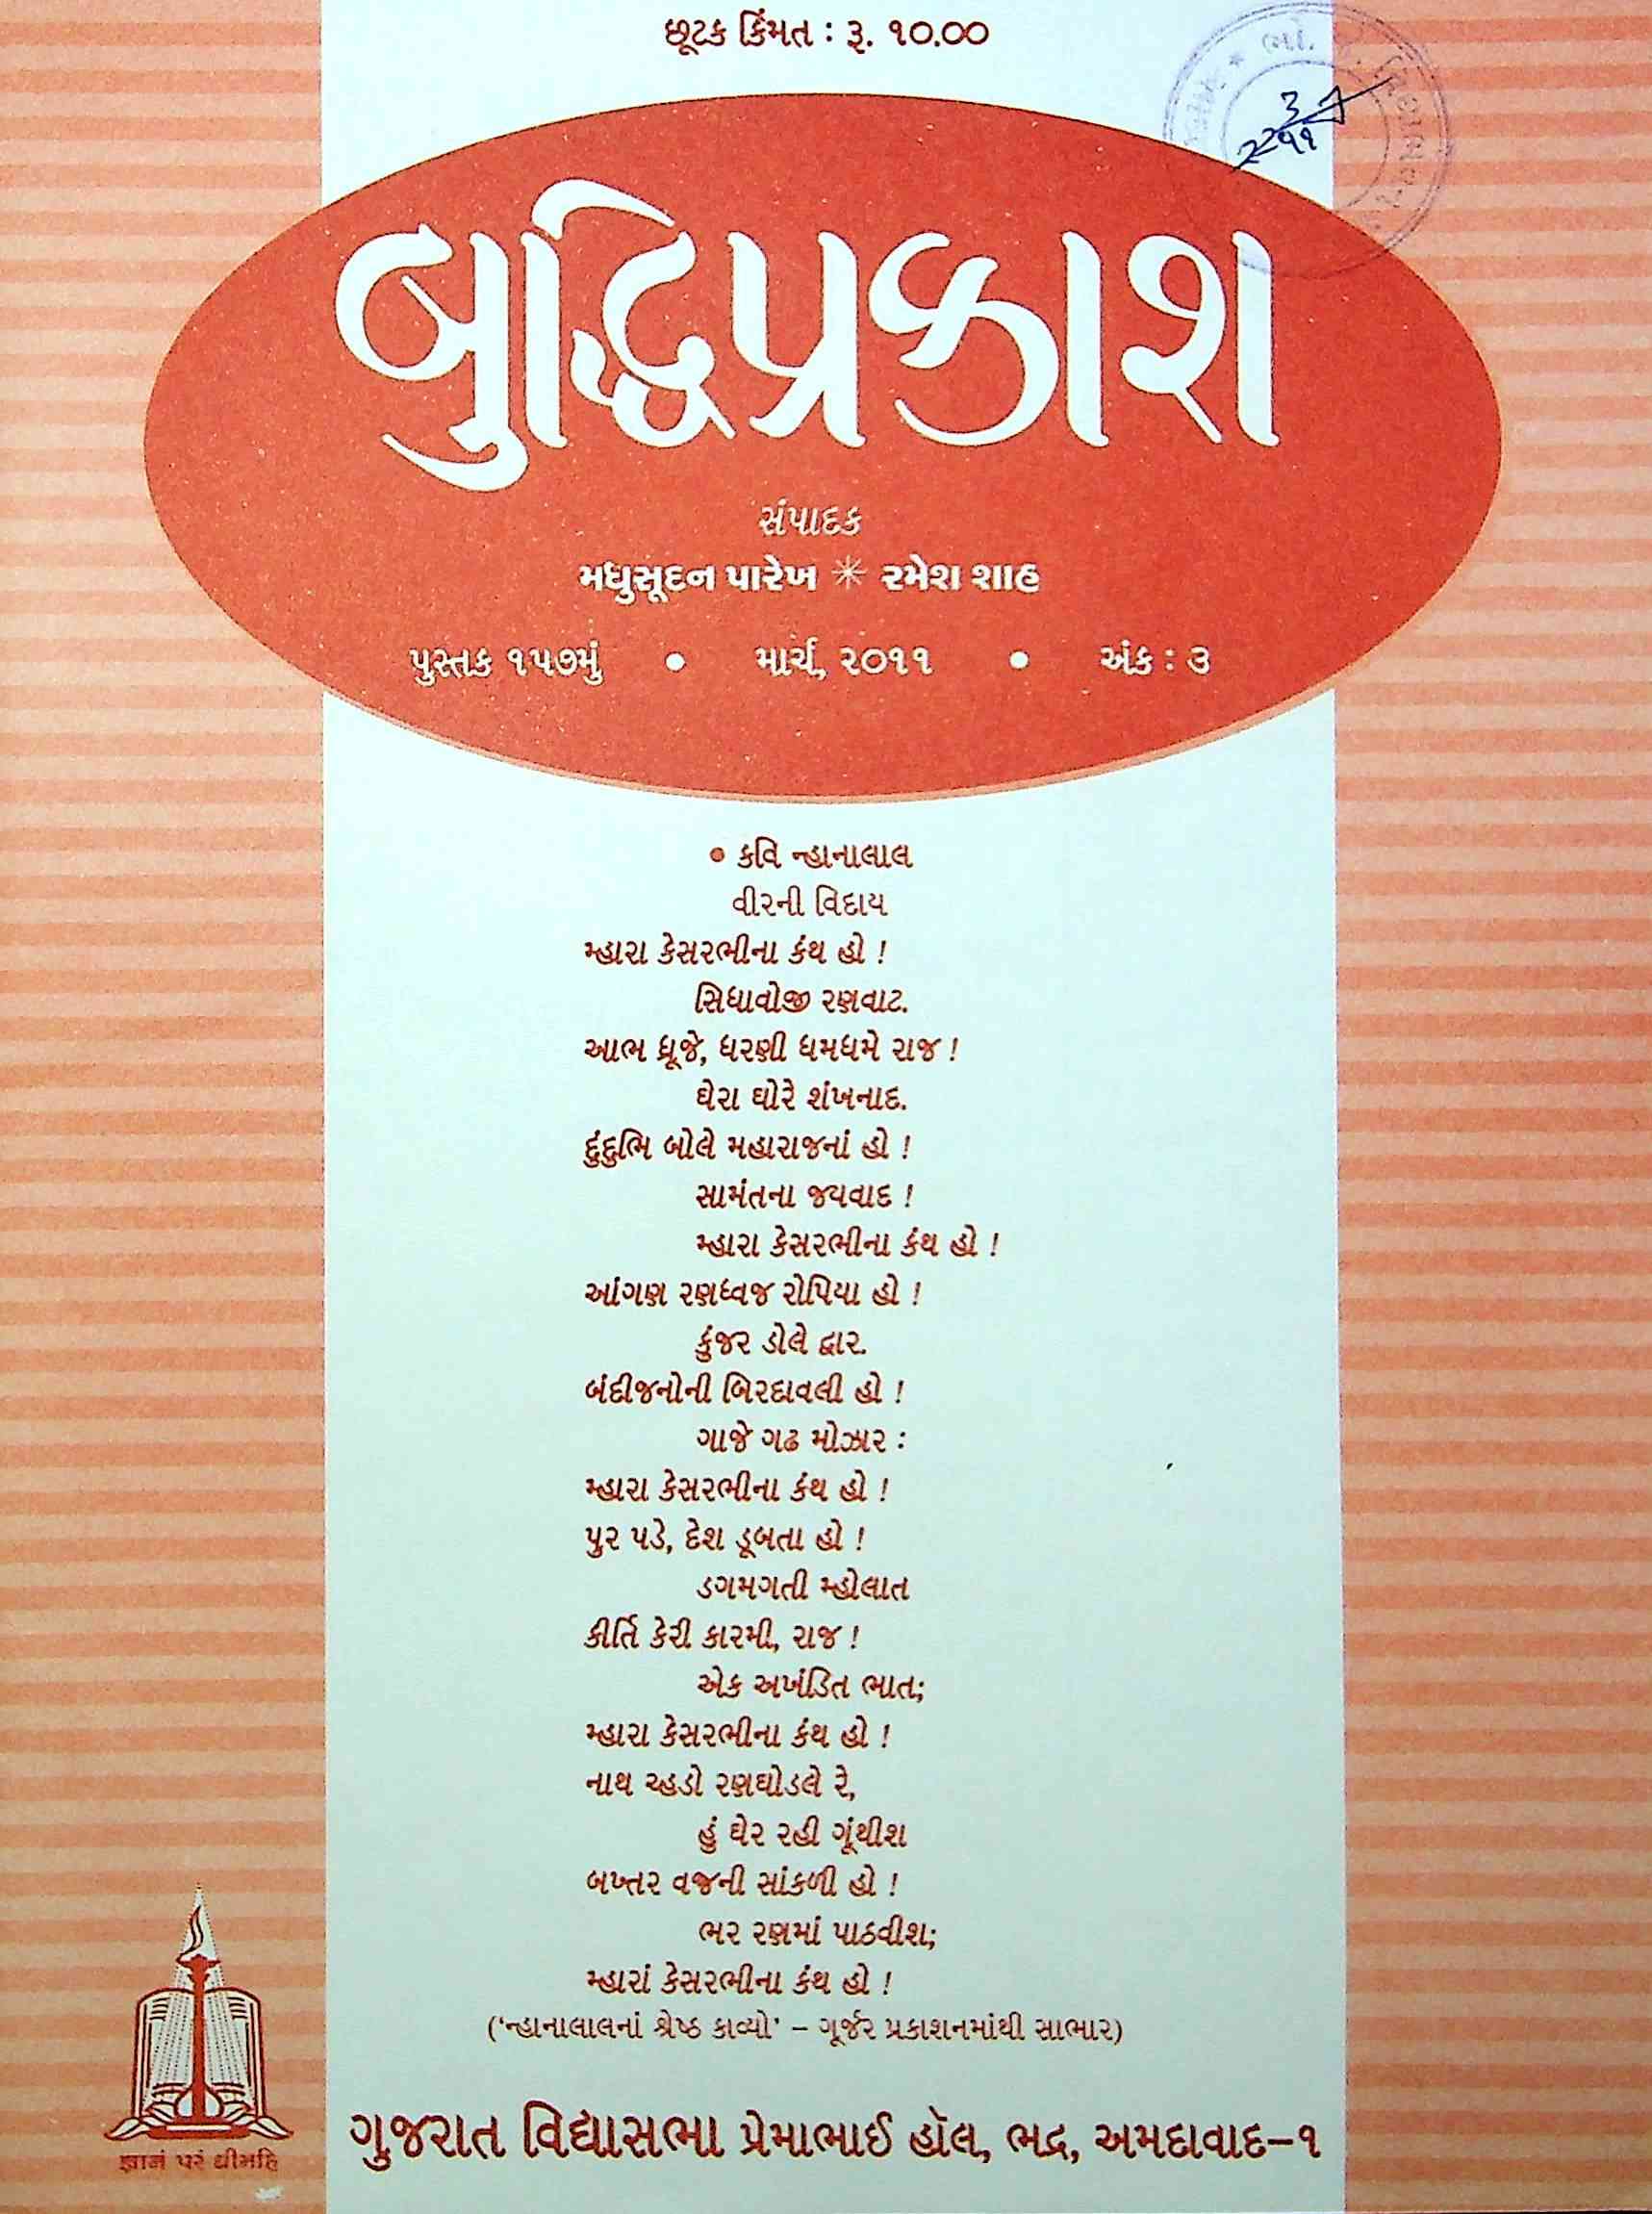 છૂટક કિંમત : રૂ. ૧૦.૦૦
બુદ્ધિપ્રકાશ
સંપાદક
મધુસૂદન પારેખ ✳ રમેશ શાહ
પુસ્તક ૧૫૭મું • માર્ચ, ૨૦૧૧ • અંક : ૩
• કવિ ન્હાનાલાલ
વીરની વિદાય
મ્હારા કેસરભીના કંથ હો !
સિધાવોજી રણવાટ.
આભ ધ્રૂજે, ધરણી ધમધમે રાજ !
ઘેરા ઘોરે શંખનાદ.
દુંદુભિ બોલે મહારાજનાં હો !
સામંતના જયવાદ !
મ્હારા કેસરભીના કંથ હો !
આંગણ રણધ્વજ રોપિયા હો !
કુંજર ડોલે દ્વાર.
બંદીજનોની બિરદાવલી હો !
ગાજે ગઢ મોઝાર :
મ્હારા કેસરભીના કંથ હો !
પુર પડે, દેશ ડૂબતા હો !
ડગમગતી મ્હોલાત
કીર્તિ કેરી કારમી, રાજ !
એક અખંડિત ભાત;
મ્હારા કેસરભીના કંથ હો !
નાથ ચ્હડો રણઘોડલે રે,
હું ઘેર રહી ગૂંથીશ
બખ્તર વજ્રની સાંકળી હો !
ભર રણમાં પાઠવીશ;
મ્હારાં કેસરભીના કંથ હો !
(‘ન્હાનાલાલનાં શ્રેષ્ઠ કાવ્યો’ – ગૂર્જર પ્રકાશનમાંથી સાભાર)
જ્ઞાનં પરં ધીમહિ
ગુજરાત વિદ્યાસભા પ્રેમાભાઈ હૉલ, ભદ્ર, અમદાવાદ–૧